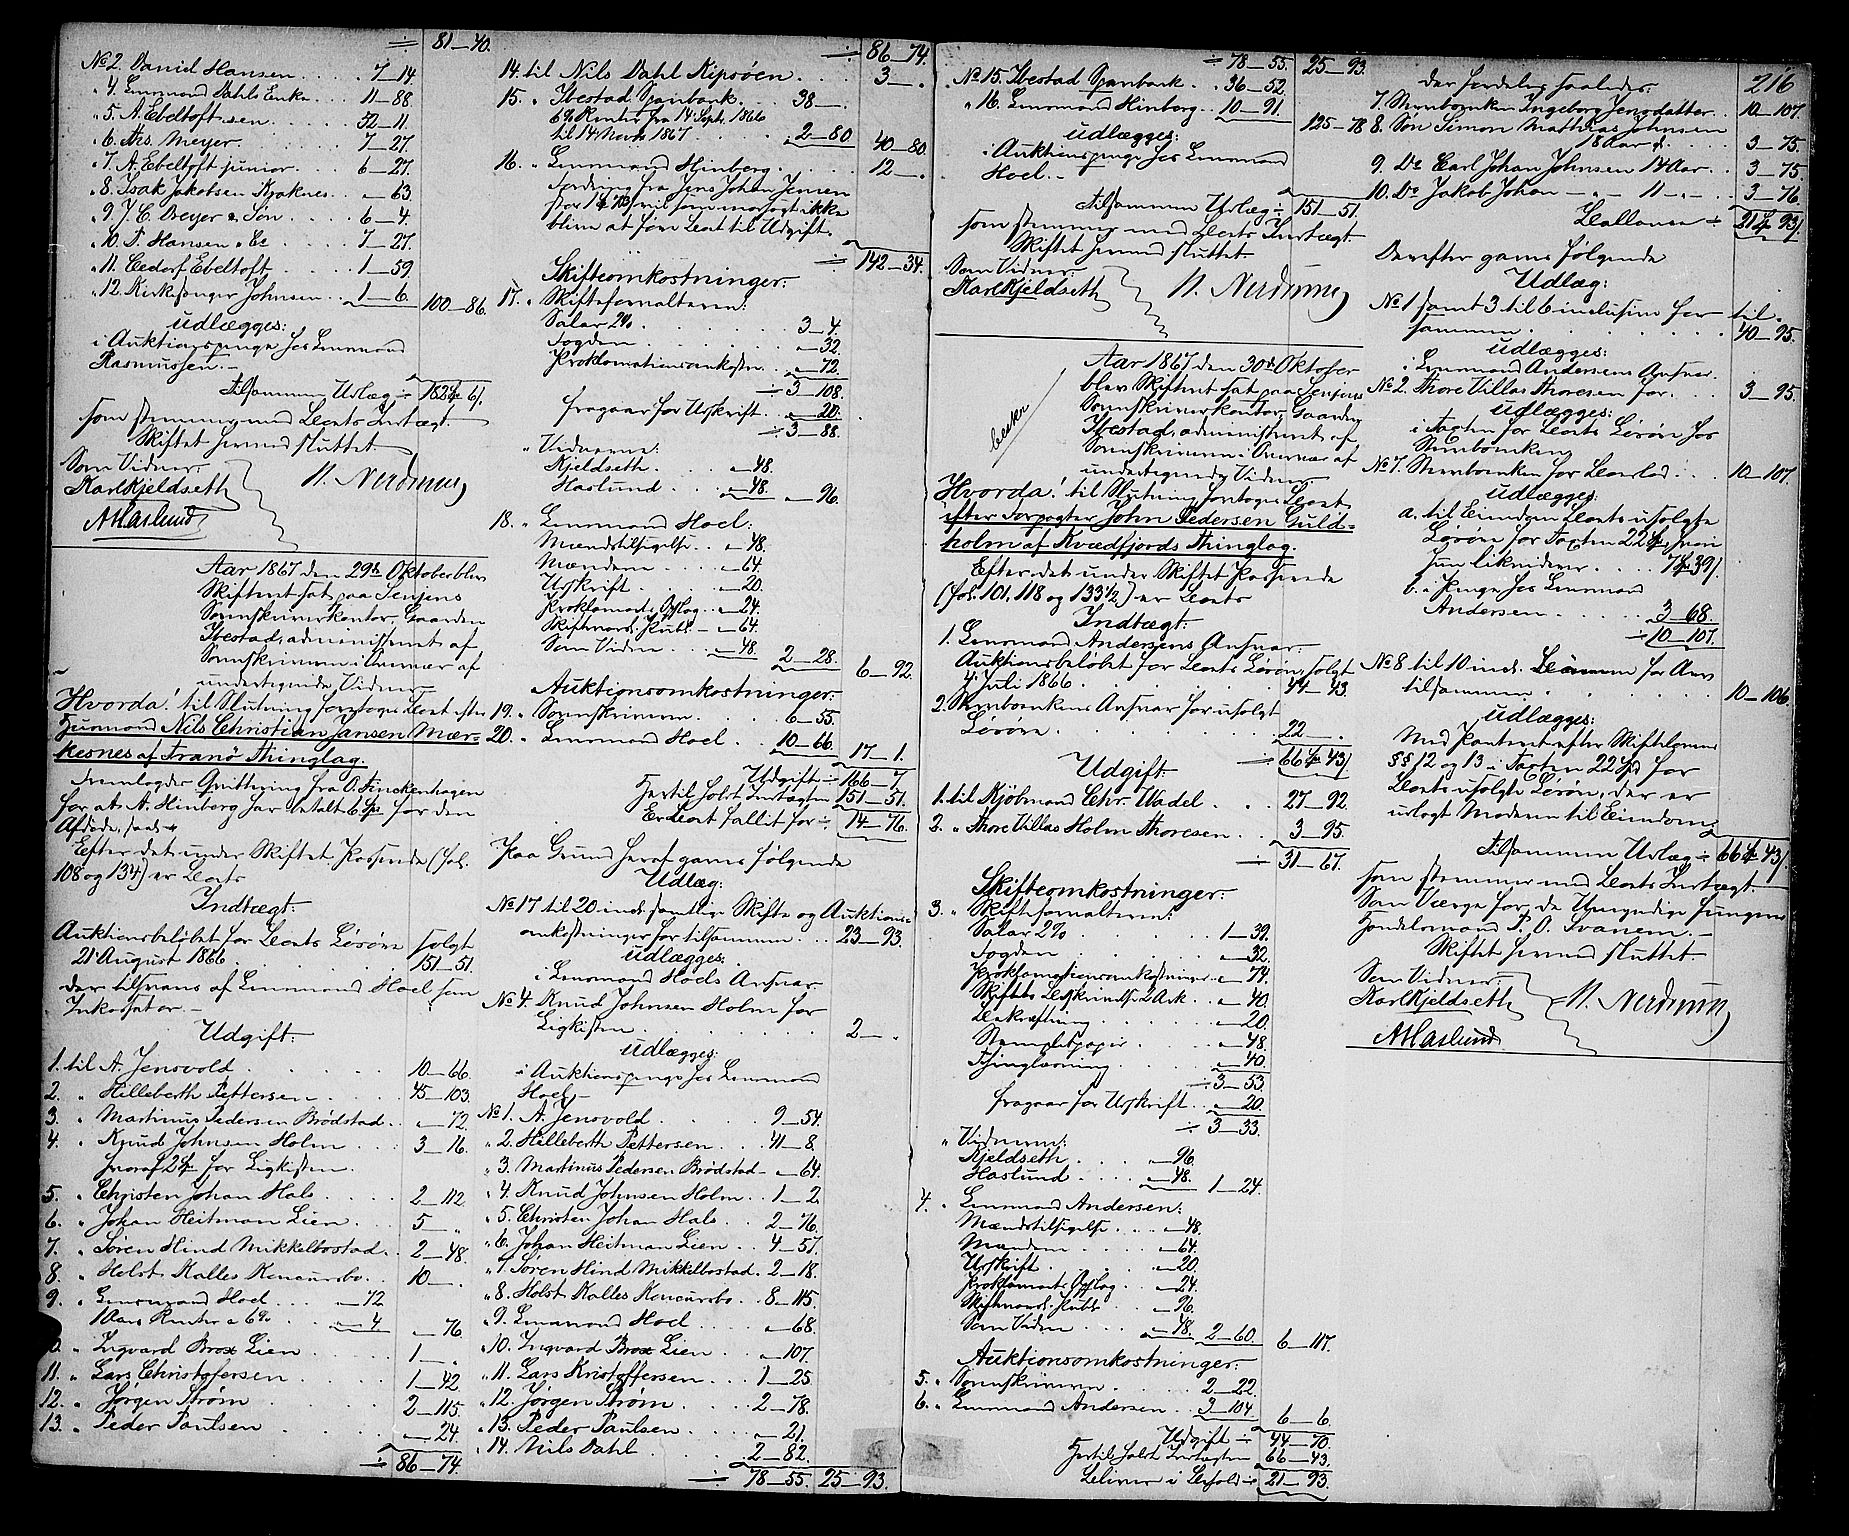 ÷ 81–40.
No 2. Daniel Hansen . . . . 7–14.
" 4. Lensmand Dahls Enke . . . 11–88
" 5. A. Ebeltoft sen . . . . 52–11.
" 6. Ths. Meyer . . . . 7–27.
" 7. A. Ebeltoft junior . . . . 6–27.
" 8. Isak Jakobsen Kjøknes . . "–63.
" 9. J. C. Dreyer & Søn . . . . 6–4.
" 10. P. Hansen & Co . . . . 7–27.
" 11. Cedorf Ebeltoft . . . . 1–59.
" 12. Kirksanger Johnsen . . 1–6. 100–86.
udlægges:
i Auktionspenge hos Lensmand
Rasmussen.–
Tilsammen Udlæg ÷ 182 61.
som stemmer med Boets Indtægt.
Skiftet hermed sluttet.
Som Vidner:
Karl Kjeldseth N. Nerdrum
A Haslund
Aar 1867 den 29de Oktober blev
Skifteret sat paa Senjens
Sorenskriverkontor, Gaarden
Ibestad, administreret af
Sorenskriveren i Overvær af
undertegnede Vidner
Hvorda! til Slutning foretoges Boet efter
Huusmand Nils Christian Jansen Mær-
kesnes af Tranø Thinglag.
Fremlagdes Qvittering fra O. Finckenhagen
for at A. Hinberg har betalt 6 for den
Afdøde, saa
Efter det under Skiftet Passerede (fol.
108 og 134) er Boets
Indtægt:
Auktionsbeløbet for Boets Løsøre solgt
21 August 1866 . . . . 151–51.
der tilsvares af Lensmand Hoel som
Inkassator.–
Udgift:
1. til A. Jensvold . . . . 10–66.
2. " Hilleberth Pettersen . . . . 45–103.
3. " Martinus Pedersen Brødstad . . "–72.
4. " Knud Johnsen Holm . . . 3–16.
hvoraf 2 for Ligkisten.
5. " Christen Johan Hals . . . . 2–112.
6. " Johan Heitman Lien . . . . 5–".
7. " Søren Hind Mikkelbostad . . 2–48.
8. " Holst Kalles Koncursbo . . 10–".
9. " Lensmand Hoel . . . "–72
1 Aars Renter a 6% . . "–4 "–76.
10. " Ingvard Brox Lien . . . . 1–".
11. " Lars Christofersen . . . . 1–42.
12. " Jørgen Strøm . . . . 2–115.
13. " Peder Paulsen . . . . "–24.
÷ 86–74.
÷ 86–74.
14. til Nils Dahl Kipsøen . . . . 3–".
15. " Ibestad Sparbank . . . 38–".
6% Renter fra 14 Sept. 1866
til 14 Novb 1867 . . . . 2–80 40–80.
16. " Lensmand Hinberg . . . . 12–".
Fordring fra Jens Johan Jensen
ikke
blive at føre Boet til Udgift.
÷ 142–34.
Skifteomkostninger:
17. " Skifteforvalteren:
Salar 2% . . . . 3–4.
Fogden . . . . "–32.
Proklamationsomkostn . . "–72.
÷ 3–108.
fragaar for Udskrift . . "–20.
÷ 3–88.
" Vidnerne:
Kjeldseth . . . . "–48.
Haslund . . . . "–48. "–96.
18. " Lensmand Hoel:
Mændstilsigelse . . "–48.
Mændene . . . . "–64.
Udskrift . . . . "–20.
Proklamats Opslag . . "–24.
Skiftmands Publ. – "–64.
Som Vidne . . . "–48. 2–28. 6–92.
Auktionsomkostninger:
19. " Sorenskriveren . . . . 6–55.
20. " Lensmand Hoel . . 10–66. 17–1.
Udgift ÷ 166–7.
Hertil holdt Indtægten 151–51.
Er Boet fallit for ÷ 14–76.
Paa Grund heraf gjøres følgende
Udlæg:
No 17 til 20 incl. samtlige Skifte og Auktions-
omkostninger for tilsammen . . . 23–93.
udlægges:
i Lensmand Hoels Ansvar
No 4. Knud Johnsen Holm for
Ligkisten . . . . 2–".
udlægges:
i Auktionspenge hos Lensmand
Hoel.
No 1. A. Jensvold . . . . 9–54.
" 2. Hilleberth Pettersen . . 41–8.
" 3. Martinus Pedersen Brødstad – "–64.
" 4. Knud Johnsen Holm . . 1–2.
" 5. Christen Johan Hals . . 2–76.
" 6. Johan Heitman Lien . . 4–57.
" 7. Søren Hind Mikkelbostad . 2–18.
" 8. Holst Kalles Koncursbo . . 8–115.
" 9. Lensmand Hoel . . . "–68.
" 10. Ingvard Brox Lien . . . "–107.
" 11. Lars Kristoffersen . . . 1–25.
" 12. Jørgen Strøm . . . . 2–78.
" 13. Peder Paulsen . . . . "–21.
" 14. Nils Dahl . . . . 2–82.
÷ 78–55. 25–93.
÷ 78–55. 25–93.
No 15. Ibestad Sparbank . . 36–52.
" 16. Lensmand Hinberg . . 10–91. 125–78
udlægges:
i Auktionspenge hos Lensmand
Hoel.–
Tilsammen Udlæg ÷ 151–51.
som stemmer med Boets Indtægt.
Skiftet hermed sluttet.
Som Vidner:
Karl Kjeldseth N. Nerdrum
Aar 1867 den 30te Oktober
blev Skifteret sat paa Senjens
Sorenskriverkontor, Gaarden
Ibestad, administreret af
Sorenskriveren i Overvær af
undertegnede Vidner
Hvorda! til Slutning foretoges Boet
efter Forpagter John Pedersen Guld-
holm af Kvædfjords Thinglag.
Efter det under Skiftet Passerede
(fol. 101, 118 og 133½) er Boets
Indtægt:
1. Lensmand Andersens Ansvar:
Auktionsbeløbet for Boets Løsøre, solgt
4 Juli 1866 . . . . 44–43
2. Stervboenkens Ansvar for usolgt
Løsøre . . . . 22–".
÷ 66 43
Udgift:
1. til Kjøbmand Chr. Wadel . . . 27–92.
2. " Thore Villas Holm Thoresen . . 3–95.
÷ 31–67.
Skifteomkostninger:
3. " Skifteforvalteren:
Salar 2% . . . . 1–39.
Fogden . . . . "–32.
Proklamationsomkostninger "–74.
Skiftets Beskrivelse 2 Ark . . "–40.
Bekræftning . . . . "–20.
Stempletpapir . . . . "–48.
Thinglæsning . . . . "–40.
÷ 3–53.
fragaar for Udskrift . . "–20.
÷ 3–33.
" Vidnerne:
Kjeldseth . . . . "–96.
Haslund . . . . "–48. 1–24.
4. " Lensmand Andersen:
Mændstilsigelse . . . "–48.
Mændene . . . . "–64.
Udskrift . . . . "–20.
Proklamats Opslag . . "–24.
Skiftmands Publ. . . "–96.
Som Vidne . . . "–48. 2–60. 6–117.
Auktionsomkostninger:
5. " Sorenskriveren . . . . 2–22.
6. " Lensmand Andersen . . 3–104. 6–6.
Udgift ÷ 44–70.
Hertil holdt Indtægten 66–43.
Bliver i Behold ÷ 21–93.
216
der fordeles saaledes:
7. Stervboenken Ingeborg Jensdatter . . 10–107.
8. Søn Simon Matthias Johnsen
18 Aar . . . . 3–75.
9. Do Carl Johan Johnsen 14 Aar . . 3–75.
10. Do Jakob Johan – " – 11 – " – . 3–76.
Ballance ÷ 21 93
Derefter gjøres følgende
Udlæg:
No 1 samt 3 til 6 inclusive for til-
sammen . . . . 40–95.
udlægges:
i Lensmand Andersens Ansvar.
No 2. Thore Villas Thoresen for . . . 3–95.
udlægges:
i Taxten for Boets Løsøre hos
Stervboenken
No 7. Stervboenken for Boeslod . . 10–107.
udlægges:
a. til Eiendom Boets usolgte
Løsøre for Taxten 22 hvori
hun likviderer . . . . 7 39
b. i Penge hos Lensmand
Andersen . . . . 3–68.
÷ 10–107.
No 8 til 10 incl. Børnene for Arv
tilsammen . . . . 10–106.
udlægges:
Med Panteret efter Skiftelovens
§§ 12 og 13 i Taxten 22 for
Boets usolgte Løsøre, der er
udlagt Moderen til Eiendom
Tilsammen Udlæg ÷ 66 43
som stemmer med Boets Indtægt.
Som Værge for de Umyndige fungerer
Handelsmand P. O. Svanem.–
Skiftet hermed sluttet.
Som Vidner:
Karl Kjeldseth N. Nerdrum
A Haslund